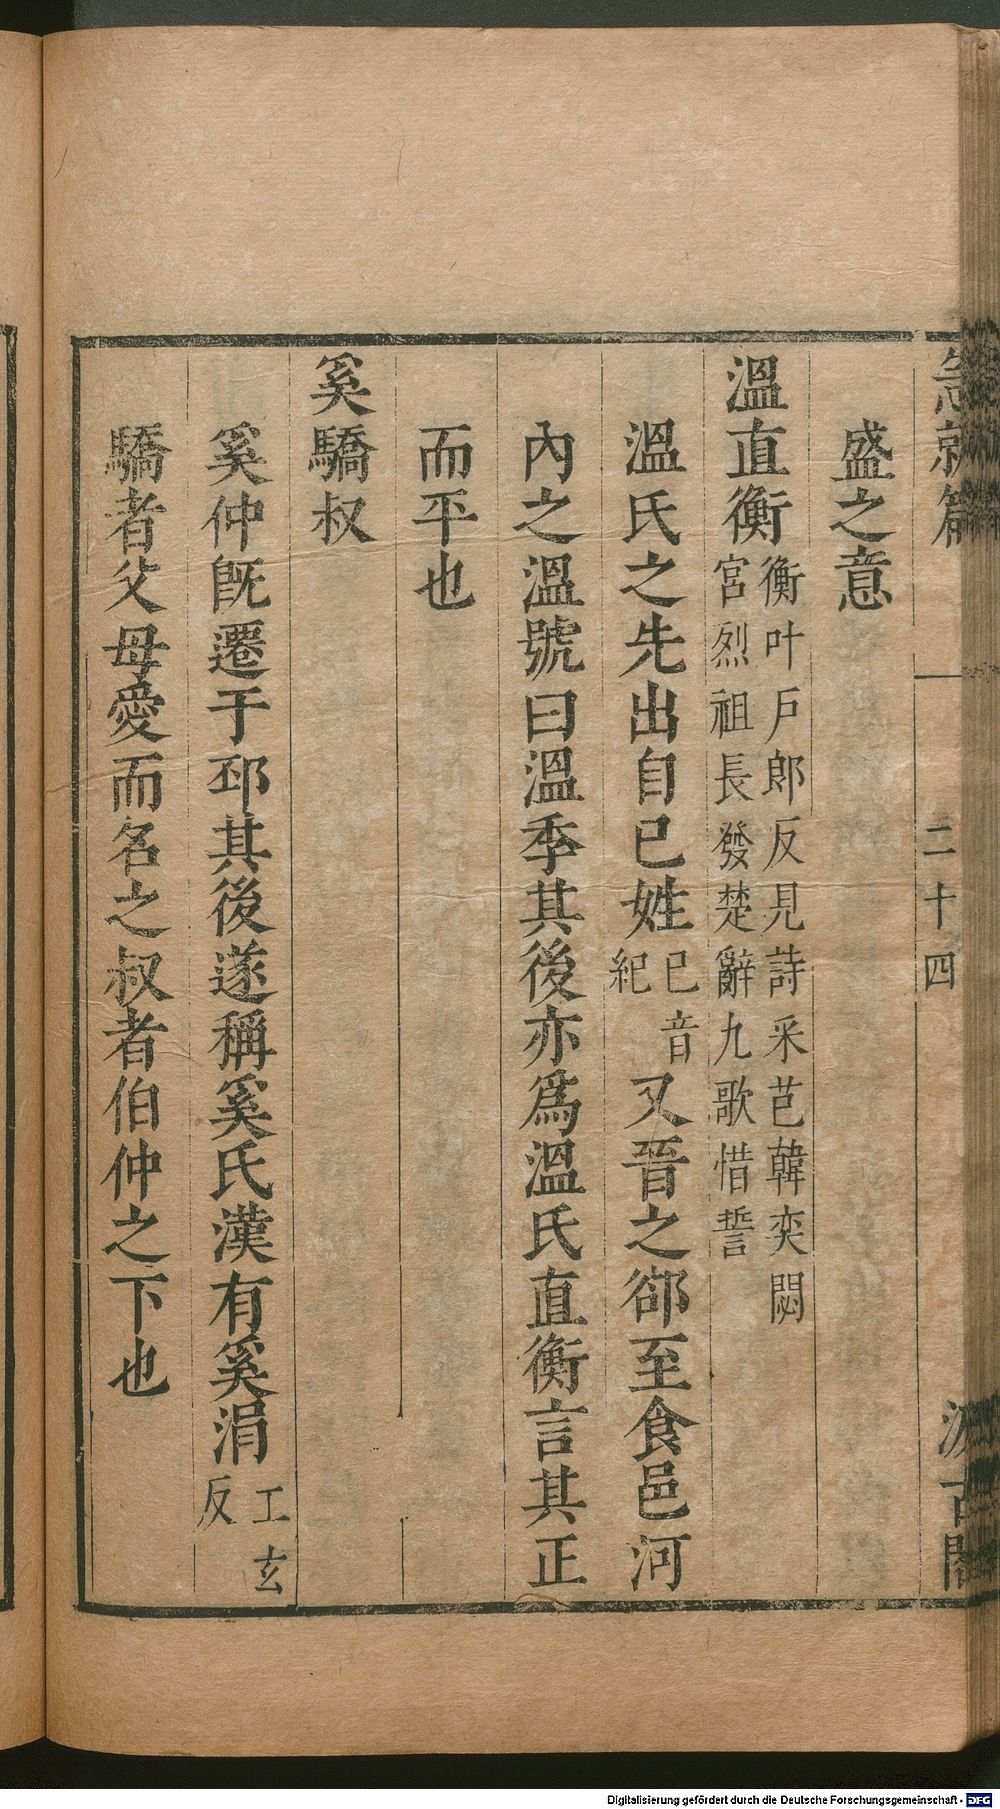 急就篇 二十四 汲古閣
盛之意
溫直衡衡叶戶郎反見詩采芑韓奕閟宮烈祖長發楚辭九歌惜誓
溫氏之先出自已姓已音紀又晉之郤至食邑河
內之溫號曰溫季其後亦爲溫氏直衡言其正
而平也
奚驕叔
奚仲旣遷于邳其後遂稱奚氏漢有奚涓工玄反
驕者父母愛而名之叔者伯仲之下也
Digitalisierung gefördert durch die Deutsche Forschungsgemeinschaft - DFG